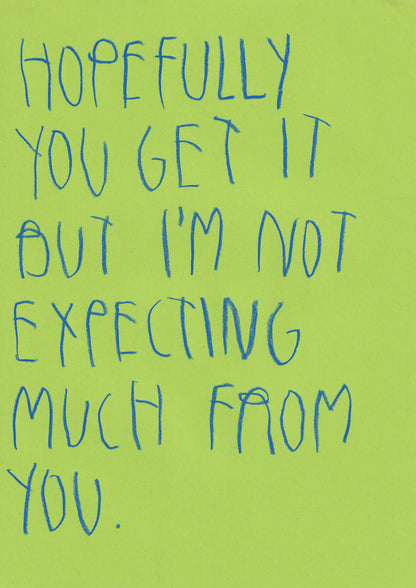 HOPEFULLY
YOU GET IT
BUT I'M NOT
EXPECTING
MUCH FROM
YOU.